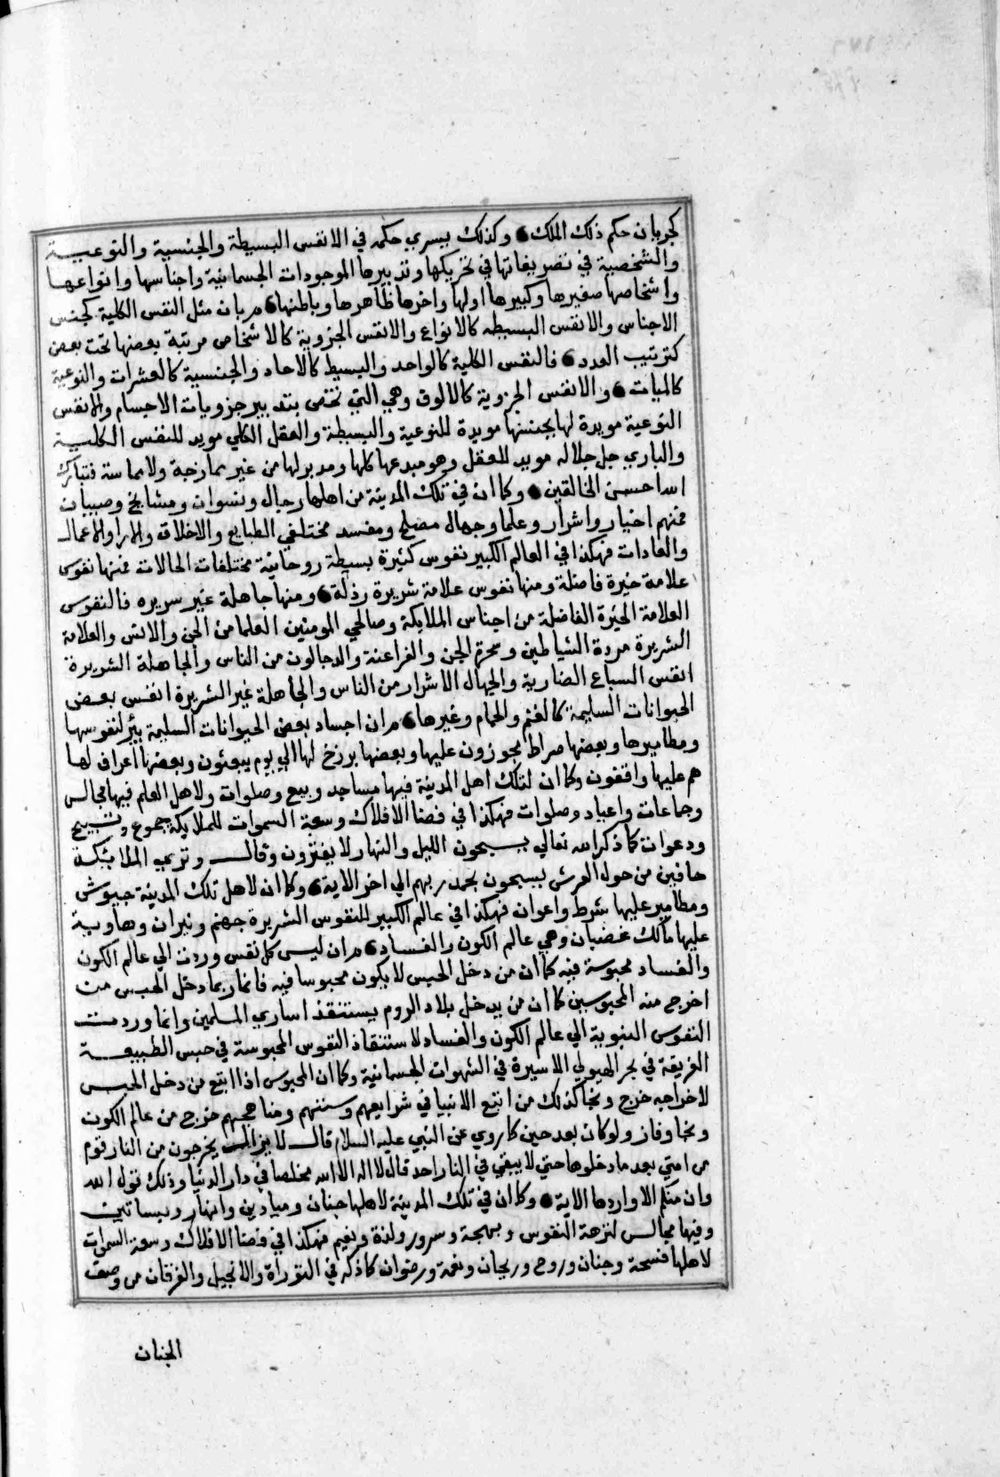 كجريان حكم ذلك الملك وكذلك يسري حكمه في الانفس البسيطة والجنسية والنوعيـــة
والشخصية في تصريفاتها في تحريكها وتدبيرها الموجودات الجسمانية واجناسها وانواعها
واشخاصها صغيرها وكبيرها اولها واخرها ظاهرها وباطنها بيان مثل النفس الكلية كجنس
الاجناس والانفس البسيطه كالانواع والانفس الجزوية كالاشخاص مرتبة بعضها تحت بعض
كترتيب العدد فالنفس الكلية كالواحد والبسيط كالاحاد والجنسية كالعشرات والنوعية
كالميات والانفس الجزوية كالالوف وهي التي تختص بتدبير جزويات الاجسام والانفس
النوعية مويدة لها بجنسها مويدة للنوعية والبسيطة والعقل الكلي مويد للنفس الكليـة
والباري جل جلاله مويد للعقل وهو مبدعها كلها ومدبر لها من غير ممازجة ولا مماسة فتبارك
الله احسن الخالقين وكما ان في تلك المدينة من اهلها رجال ونسوان ومشايخ وصبيان
فمنهم اخيار واشرار وعلما وجهال مصلح ومفسد مختلفي الطبايع والاخلاق والارا والاعمال
والعادات فهكذا في العالم الكبير نفوس كثيرة بسيطة روحانية مختلفات الحالات فمنها نفوس
علامة خيرة فاضلة ومنها نفوس علامة شريرة رذلة ومنها جاهلة غير سريره فالنفوس
العلامة الخيرة الفاضلة من اجناس الملايكة وصالحي المومنين العلما من الجن والانس والعلامة
الشريرة مردة الشياطين وسحرة الجن والفراعنة والدجالون من الناس والجاهلة الشريرة
انفس السباع الضارية والجهال الاشرار من الناس والجاهلة غير الشريرة انفس بعض
الحيوانات السليمة كالغنم والحمام وغيرها ان اجساد بعض الحيوانات السليمة بئر لنفوسها
ومطاميرها وبعضها صراط مجوزون عليها وبعضها برزخ لها الي يوم يبعثون وبعضها اعراف لها
هم عليها واقفون وكما ان لتلك اهل المدينة فيها مساجد وبيع وصلوات ولاهل العلم فيها مجالس
وجماعات واعياد وصلوات فهكذا في فضا الافلاك وسعة السموات للملايكة جموع وتسبيح
ودعوات كما ذكر الله تعالي يسبحون الليل والنهار لا يفترون وقالـــ وتري الملائكة
حافين من حول العرش يسبحون بحمد ربهم الي اخر الاية وكما ان لاهل تلك المدينة جيوش
ومطامير عليها شرط واعوان فهكذا في عالم الكبير للنفوس الشريرة جهنم ونيران وهاوية
عليها مالك غضبان وهي عالم الكون والفساد ان ليس كل نفس وردت الي عالم الكون
والفساد محبوسة فيه كما ان من دخل الحبس لا يكون محبوسا فيه فانما ربما دخل الحبس من
اخرج منه المحبوسين كما ان من يدخل بلاد الروم يستنقذ اساري المسلمين وانما وردت
النفوس النبوية الي عالم الكون والفساد لاستنقاذ النفوس المحبوسة في حبس الطبيعـــة
الغريقة في بحر الهيولي الاسيرة في الشهوات الجسمانية وكما ان المحبوس اذا اتبع من دخل الحبس
لاخراجه خرج ونجا كذلك من اتبع الانبيا في شرايعهم وسننهم ومناهجهم خرج من عالم الكون
ونجا وفاز ولو كان بعد حين كما روي عن النبي عليه السلام قالـ لا يزال يخرجون من النار قوم
من امتي بعد ما دخلوها حتي لا يبقي في النار احد قال لا اله الا الله مخلصا في دار الدنيا وذلك قول الله
وان منكم الا واردها الاية وكما ان في تلك المدينة لاهلها جنان وميادين وانهار وبساتين
وفيها مجالس لنزهة النفوس وبهجة وسرور ولذة ونعيم فهكذا في فضا الافلاك وسعة السموات
لاهلها فسحة وجنان وروح وريحان ونعمة ورضوان كما ذكر في التوراة والانجيل والفرقان من وصف
الجنان